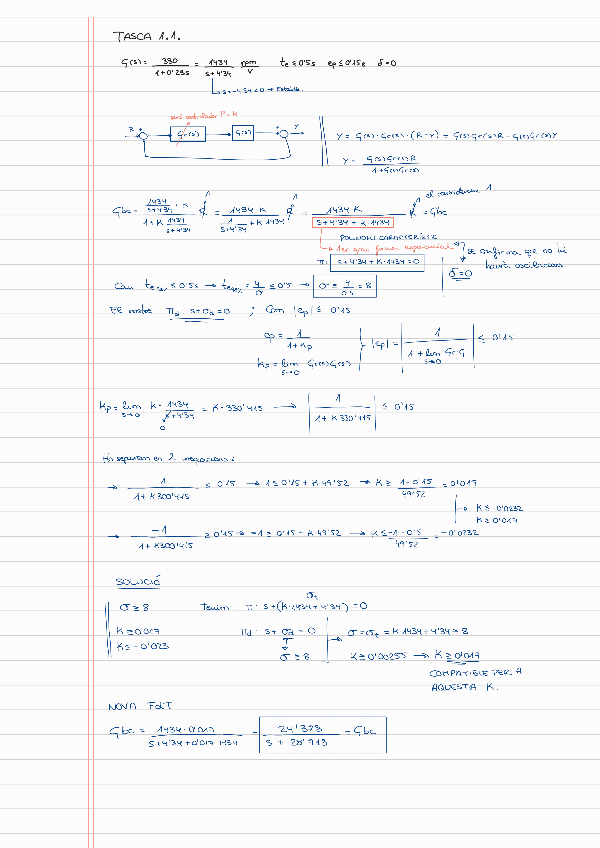 TASCA 1.1.
G(s) = 330 / 1+0'23s = 1434 / s+4'34 rpm / V te ≤ 0'5s ep ≤ 0'15 δ=0
s = -4'34 <0 → Estable.
amb controlador P = K
R + Gc(s) G(s) + Y
Y = G(s)·Gc(s)·(R-Y) = G(s)Gc(s)R - G(s)Gc(s)Y
Y = G(s)Gc(s)R / 1+G(s)Gc(s)
el considerem 1
Gbc = 1434 / s+4'34 · K / 1+K 1434 / s+4'34 R = 1434 K / s+4'34 + K 1434 R = 1434 K / s+4'34 + K 1434 R = Gbc
POLINOMI CARACTERÍSTIC
→ 1er grau forma exponencial
Π: s+4'34+K·1434=0
se confirma que no hi
haurà oscil·lacions
δ=0
Com te ≤ 0'5s → te = 4 / σ ≤ 0'5 → σ ≥ 4 / 0'5 = 8
Πd: s+σd = 0 ; Com |ep| ≤ 0'15
ep = 1 / 1+Kp
Kp = lim s→0 G(s)Gc(s)
|ep| = | 1 / 1+lim s→0 Gc·G | ≤ 0'15
Kp = lim s→0 K· 1434 / s+4'34 = K·330'415 → | 1 / 1+K330'415 | ≤ 0'15
0
Ho separem en 2 inequacions:
→ 1 / 1+K300'415 ≤ 0'15 → 1 ≤ 0'15 + K 49'52 → K ≥ 1-0'15 / 49'52 = 0'017
→ K ≤ -0'0232
K ≥ 0'017
→ -1 / 1+K300'415 ≥ 0'15 → -1 ≥ 0'15 + K 49'52 → K ≤ -1-0'15 / 49'52 = -0'0232
SOLUCIÓ
σ ≥ 8 Tenim: Π: s+(K·1434+4'34) = 0
K ≥ 0'017
K ≤ -0'023
Πd: s+σd = 0 → σ = σt = K·1434+4'34 = 8
σ ≥ 8 K ≥ 0'00255 → K ≥ 0'017
COMPATIBLE PER A
AQUESTA K.
NOVA FdT
Gbc = 1434·0'017 / s+4'34+0'017·1434 = 24'378 / s + 28'718 = Gbc